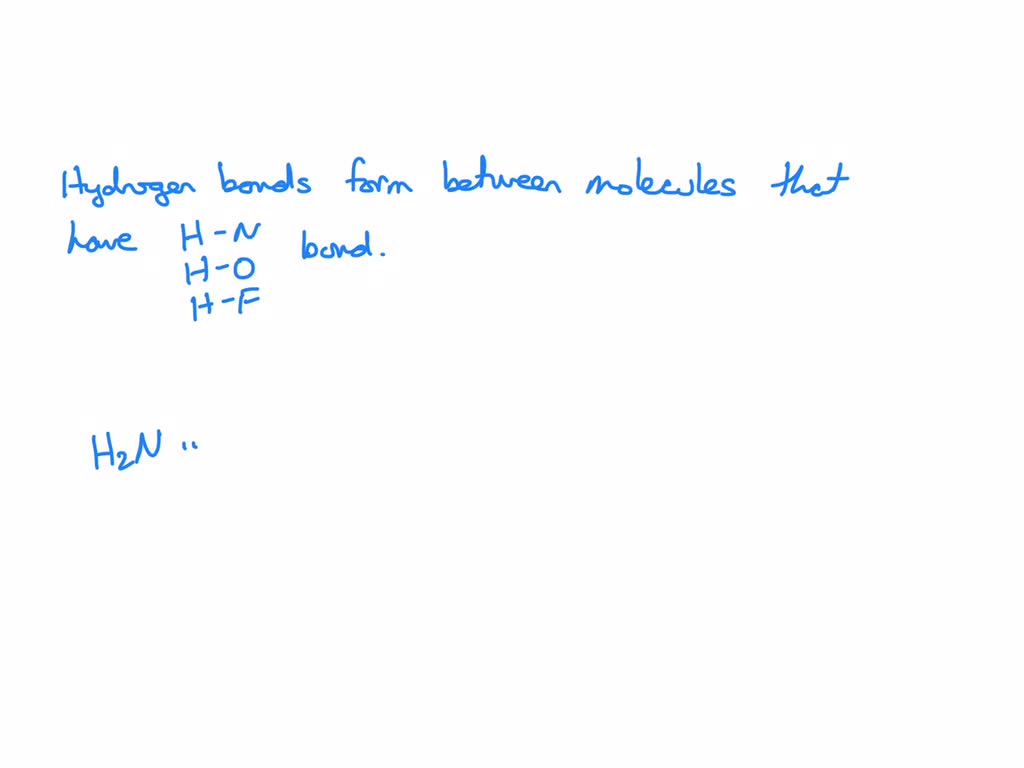 Hydrogen bonds form between molecules that
have H-N bond.
H-O
H-F
H₂N ..